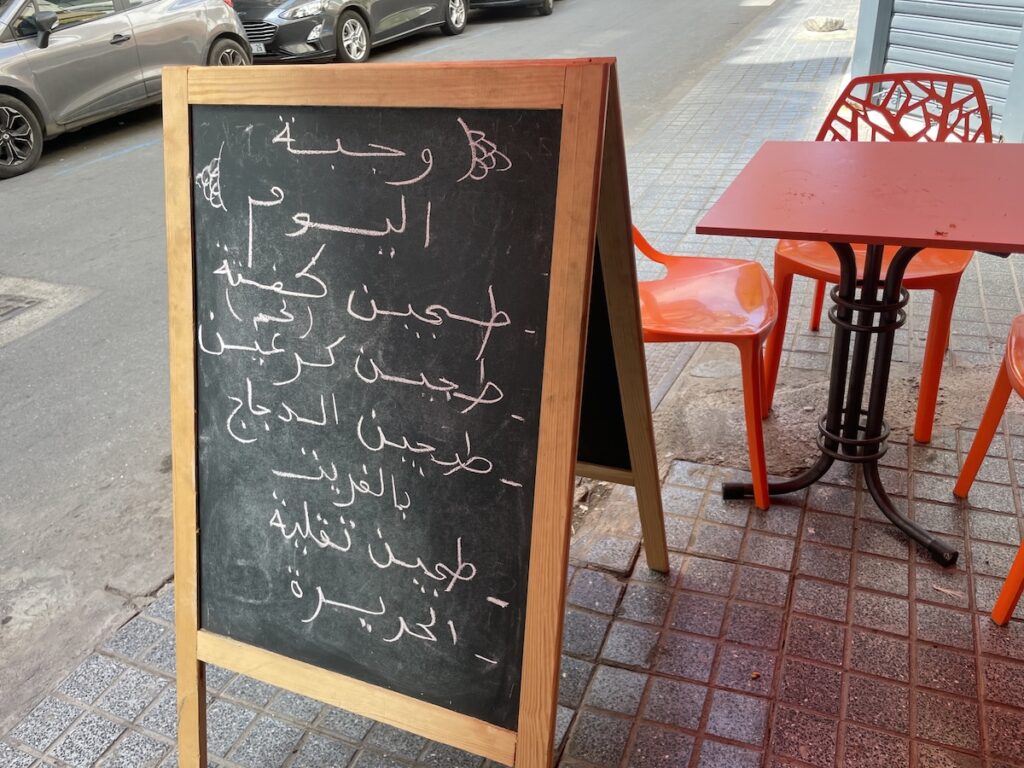 وجبة
اليوم
- طجين كفتة
(لحم)
- طجين كرعين
- طجين الدجاج
بالفريت
- طجين تقلية
- الحريرة